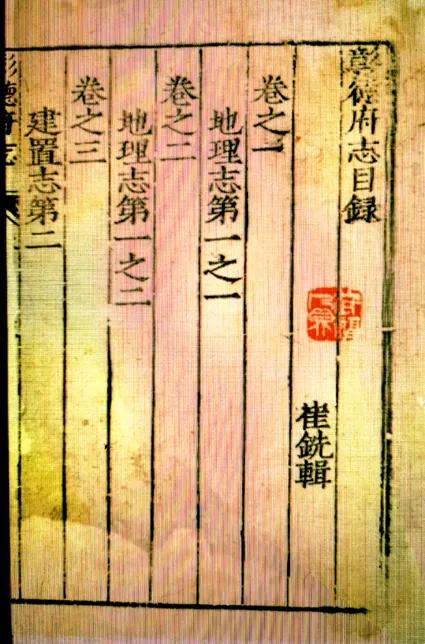 彰德府志目録
崔銑輯
卷之一
地理志第一之一
卷之二
地理志第一之二
卷之三
建置志第二
彰德府志